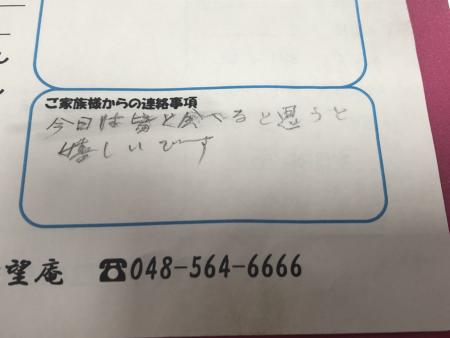 ご家族様からの連絡事項
今日は皆と食べると思うと
嬉しいです
望庵 ☎048-564-6666